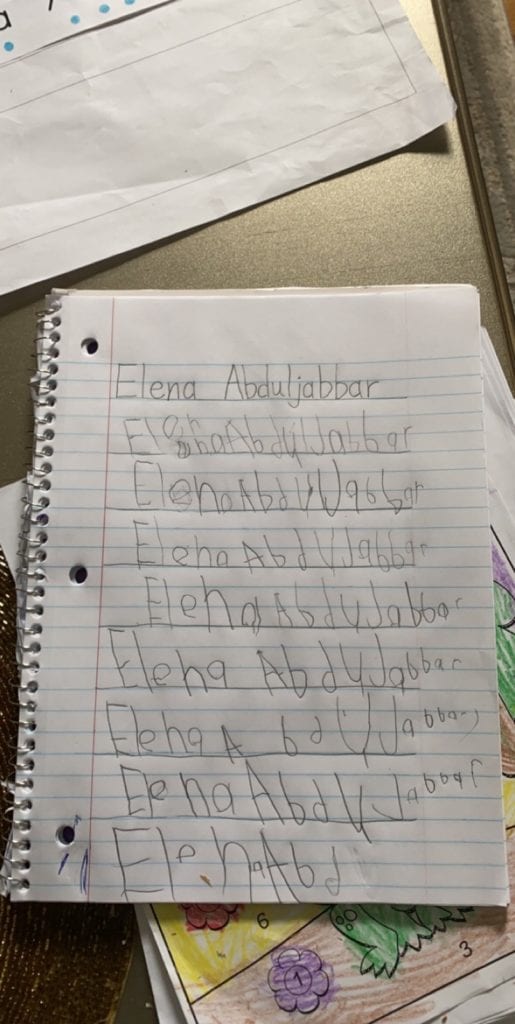 a
Elena Abduljabbar
Elena AbdulJabbar
Elena AbdulJabbar
Elena AbdUJabbar
Elena AbdUJabbar
Elena AbdUJabbar
Elena AbdUJabbar
Elena AbdUJabbar
Elena Abd
6
1
3